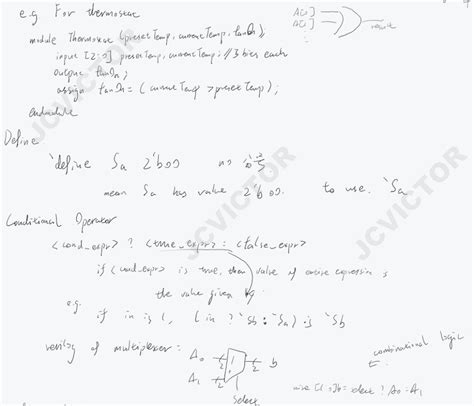 e.g. For thermostat
A[ ]
A[ ]
result
module Thermostat (presetTemp, currentTemp, fanOn);
input [2:0] presetTemp, currentTemp; // 3 bits each
output fanOn;
assign fanOn = (currentTemp > presetTemp);
endmodule
Define
`define Sa 2'b00 no
mean Sa has value 2'b00. to use. `Sa
Conditional Operator
<cond_expr> ? <true_expr> : <false_expr>
if <cond_expr> is true, then value of entire expression is
the value given by
e.g. if in is 1, (in ? `Sb : `Sa) is `Sb
combinational logic
verilog of multiplexer: A0 2 1 2 b
A1 2
select
wire [1:0] b = select ? A0 : A1
JCVICTOR
JCVICTOR
JCVICTOR
JCVICTOR